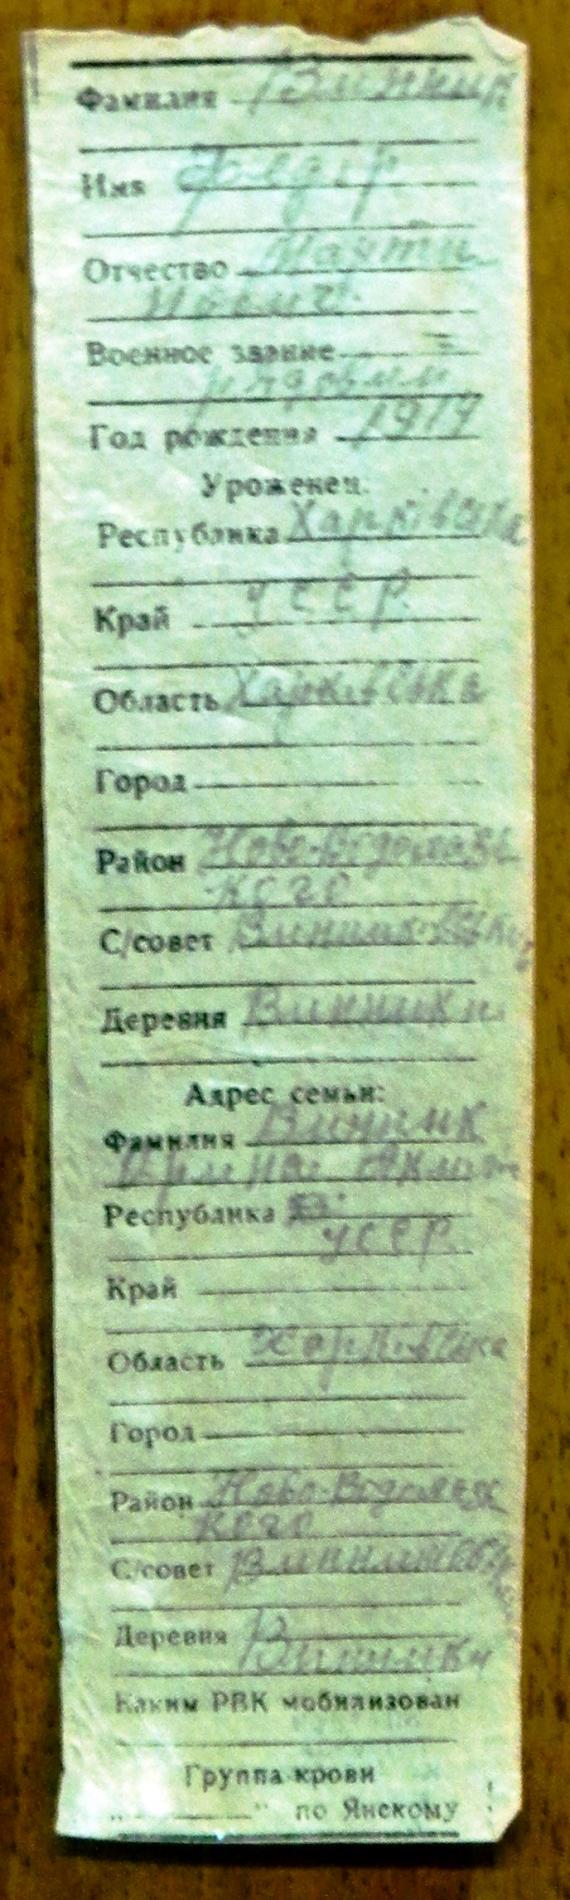 Фамилия Винник
Имя Федір
Отчество
Военное звание
рядовий
Год рождения 1914
Уроженец:
Республика Харківська
Край УССР.
Область Харківська
Город
Район Ново-Водолазь
кого
С/совет
Деревня Винники
Адрес семьи:
Фамилия Винник
Республика
УССР.
Край
Область Харківська
Город
Район
кого
С/совет
Деревня Винники
Каким РВК мобилизован
Группа крови
„ " по Янскому